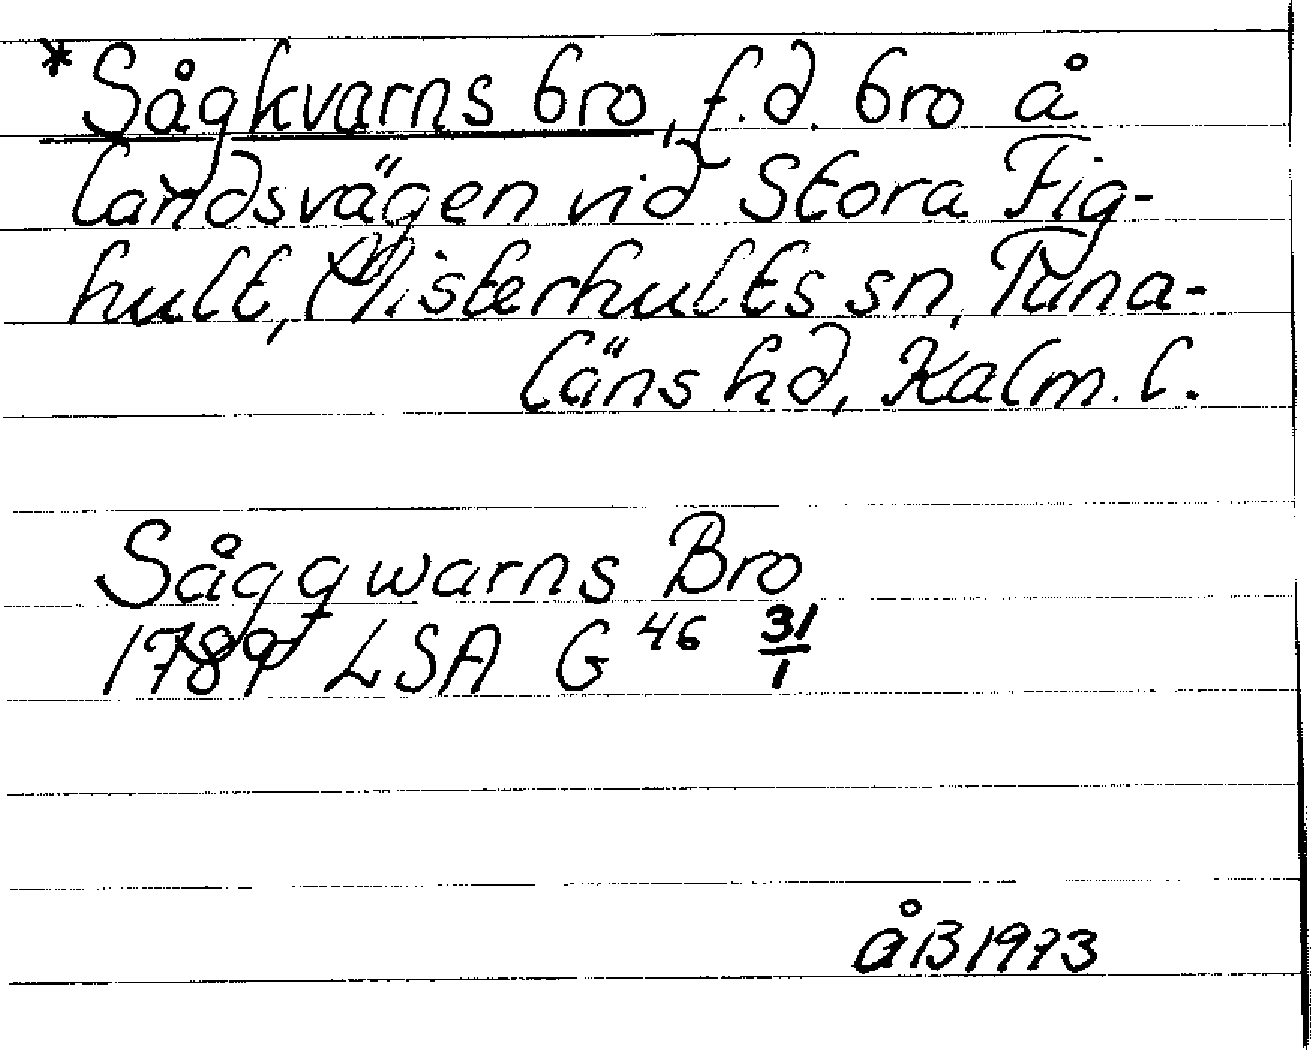 *Sågkvarns bro, f.d. bro å
landsvägen vid Stora Fig-
hult, Misterhults sn, Tuna-
läns hd, Kalm. l.
Sågqwarns Bro
1789 LSA G 46 31/1
ÅB 1973